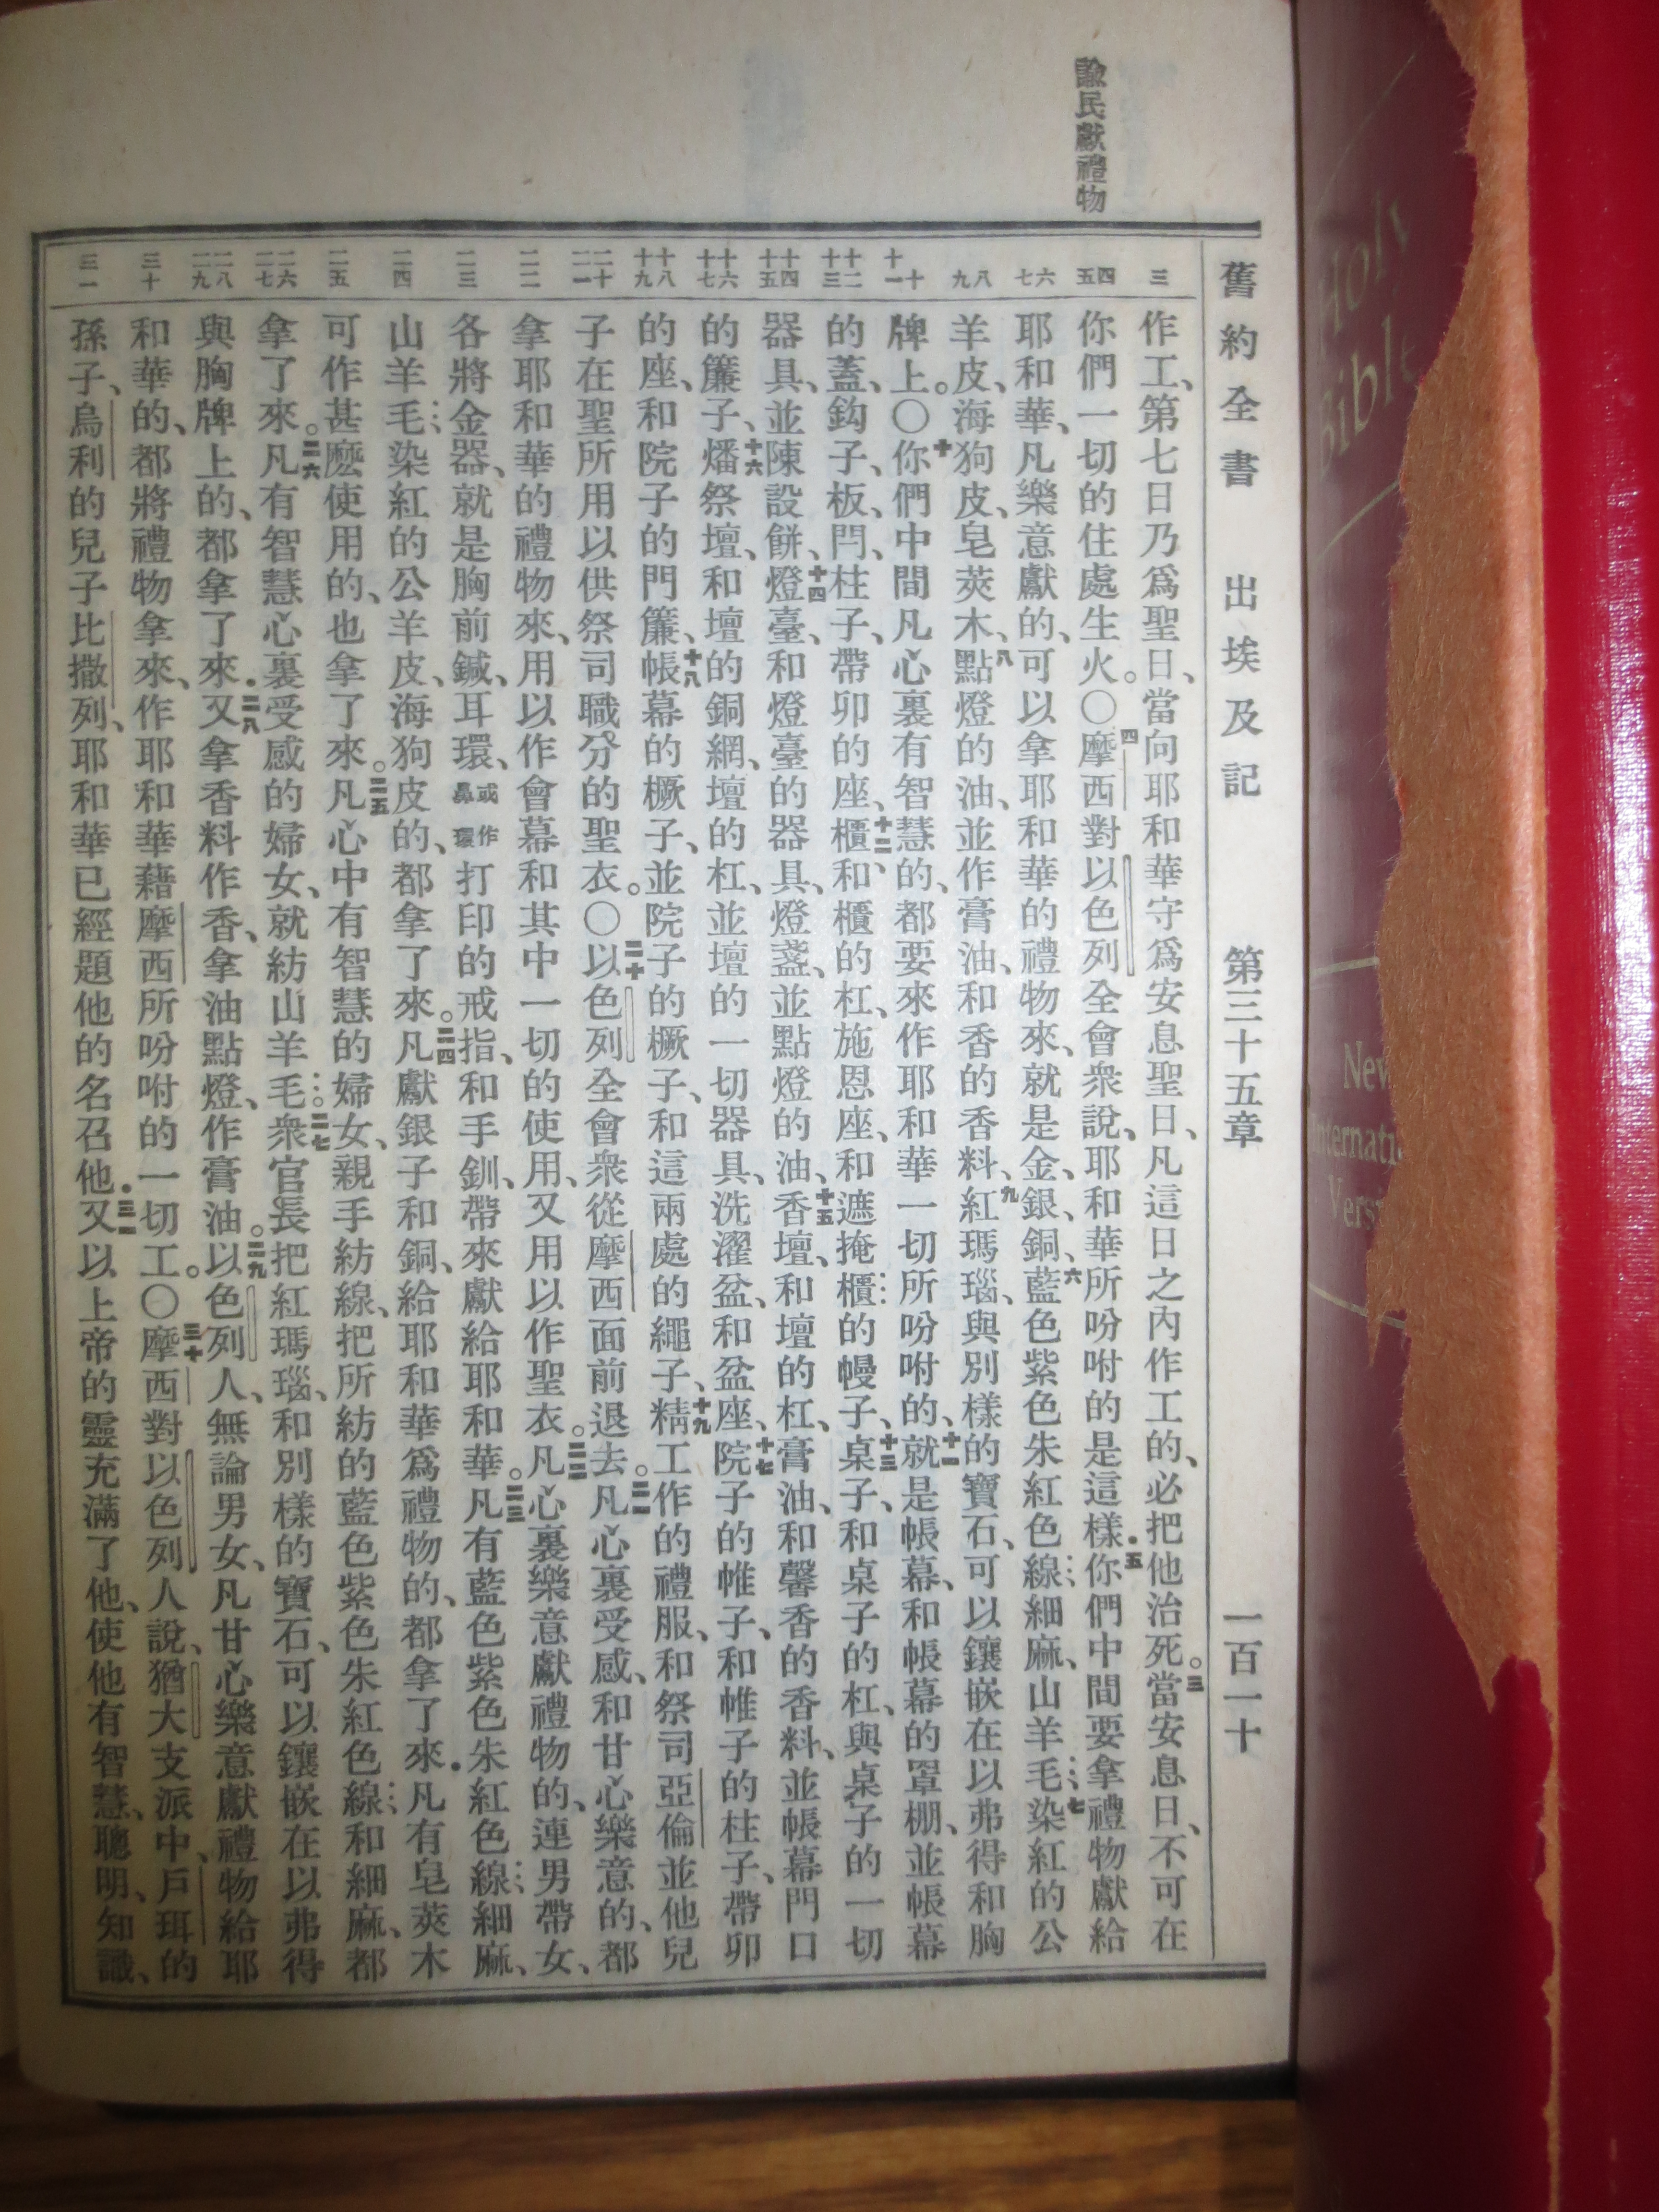 諭民獻禮物
舊約全書 出埃及記 第三十五章 一百一十
三
作工、第七日乃爲聖日、當向耶和華守爲安息聖日、凡這日之內作工的、必把他治死。三當安息日、不可在
四 五
你們一切的住處生火。〇四摩西對以色列全會衆說、耶和華所吩咐的是這樣．五你們中間要拿禮物獻給
六 七
耶和華、凡樂意獻的、可以拿耶和華的禮物來、就是金、銀、銅、六藍色紫色朱紅色線、細麻、山羊毛、七染紅的公
八 九
羊皮、海狗皮、皂莢木、八點燈的油、並作膏油、和香的香料、九紅瑪瑙、與別樣的寶石、可以鑲嵌在以弗得和胸
十 十一
牌上。〇十你們中間凡心裏有智慧的、都要來作耶和華一切所吩咐的、十一就是帳幕、和帳幕的罩棚、並帳幕
十二 十三
的蓋、鈎子、板、閂、柱子、帶卯的座、十二櫃、和櫃的杠、施恩座、和遮掩櫃的幔子、十三桌子、和桌子的杠、與桌子的一切
十四 十五
器具、並陳設餅、十四燈臺、和燈臺的器具、燈盞、並點燈的油、十五香壇、和壇的杠、膏油、和馨香的香料、並帳幕門口
十六 十七
的簾子、十六燔祭壇、和壇的銅網、壇的杠、並壇的一切器具、洗濯盆、和盆座、十七院子的帷子、和帷子的柱子、帶卯
十八 十九
的座、和院子的門簾、十八帳幕的橛子、並院子的橛子、和這兩處的繩子、十九精工作的禮服、和祭司亞倫並他兒
二十 二一
子在聖所用以供祭司職分的聖衣。〇二十以色列全會衆從摩西面前退去。二一凡心裏受感、和甘心樂意的、都
二二
拿耶和華的禮物來、用以作會幕和其中一切的使用、又用以作聖衣。二二凡心裏樂意獻禮物的、連男帶女、
二三
各將金器、就是胸前鍼、耳環、或作鼻環打印的戒指、和手釧、帶來獻給耶和華。二三凡有藍色紫色朱紅色線、細麻、
二四
山羊毛、染紅的公羊皮、海狗皮的、都拿了來。二四凡獻銀子和銅、給耶和華爲禮物的、都拿了來．凡有皂莢木
二五
可作甚麼使用的、也拿了來。二五凡心中有智慧的婦女、親手紡線、把所紡的藍色紫色朱紅色線、和細麻、都
二六 二七
拿了來。二六凡有智慧心裏受感的婦女、就紡山羊毛。二七衆官長把紅瑪瑙、和別樣的寶石、可以鑲嵌在以弗得
二八 二九
與胸牌上的、都拿了來．二八又拿香料作香、拿油點燈、作膏油。二九以色列人、無論男女、凡甘心樂意獻禮物給耶
三十
和華的、都將禮物拿來、作耶和華藉摩西所吩咐的一切工。〇三十摩西對以色列人說、猶大支派中、戶珥的
三一
孫子、烏利的兒子比撒列、耶和華已經題他的名召他．三一又以上帝的靈充滿了他、使他有智慧、聰明、知識、
Holy
Bible
New
Internati
Vers